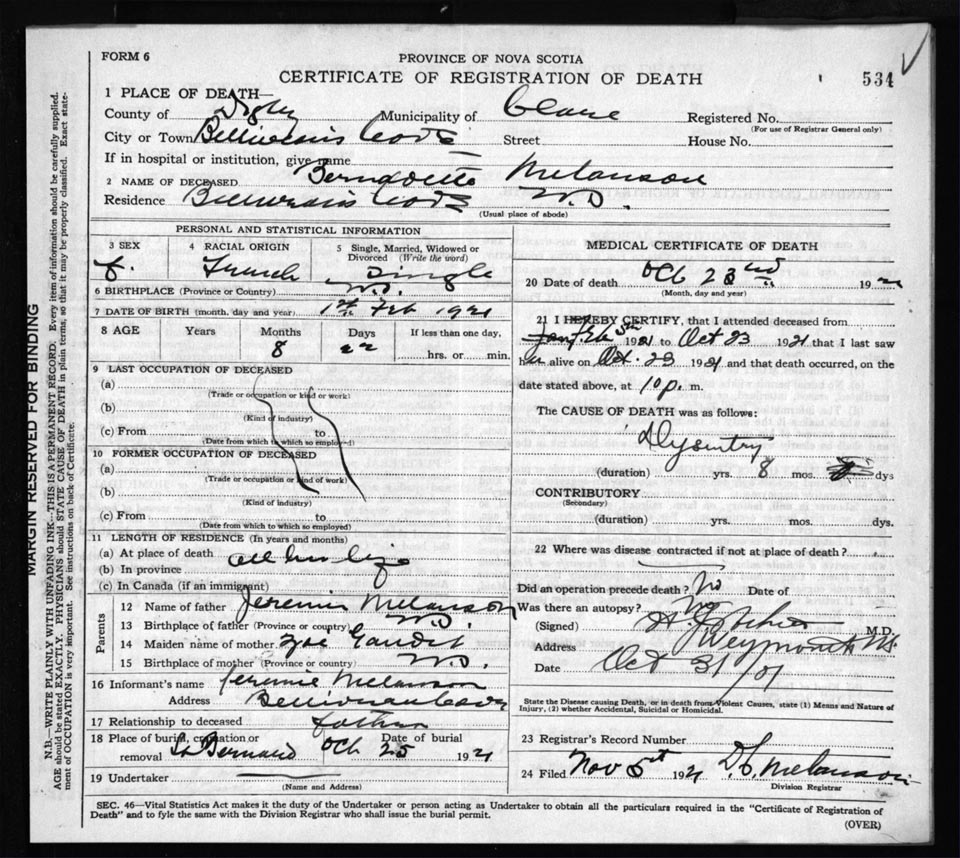 FORM 6
PROVINCE OF NOVA SCOTIA
CERTIFICATE OF REGISTRATION OF DEATH
534
1 PLACE OF DEATH—
County of Digby Municipality of Clare Registered No.
(For use of Registrar General only)
City or Town Belliveau's Cove Street House No.
If in hospital or institution, give name
2 NAME OF DECEASED Bernadette Melanson
Residence Belliveau's Cove N.S.
(Usual place of abode)
PERSONAL AND STATISTICAL INFORMATION
3 SEX 4 RACIAL ORIGIN 5 Single, Married, Widowed or Divorced (Write the word)
f. French Single
6 BIRTHPLACE (Province or Country) N.S.
7 DATE OF BIRTH (month, day and year) 1st Feb 1921
8 AGE Years Months Days If less than one day,
8 22 hrs. or min.
9 LAST OCCUPATION OF DECEASED
(a)
(Trade or occupation or kind or work)
(b)
(Kind of industry)
(c) From to
(Date from which to which so employed)
10 FORMER OCCUPATION OF DECEASED
(a)
(Trade or occupation or kind of work)
(b)
(Kind of industry)
(c) From to
(Date from which to which so employed)
11 LENGTH OF RESIDENCE (In years and months)
(a) At place of death all her life
(b) In province
(c) In Canada (if an immigrant)
Parents
12 Name of father Jeremie Melanson
13 Birthplace of father (Province or country) N.S.
14 Maiden name of mother Zoe Gaudet
15 Birthplace of mother (Province or country) N.S.
16 Informant's name Jeremie Melanson
Address Belliveau Cove
17 Relationship to deceased father
18 Place of burial, cremation or removal St Bernard Date of burial Oct 25 1921
19 Undertaker
(Name and Address)
MEDICAL CERTIFICATE OF DEATH
20 Date of death Oct 23nd 1921
(Month, day and year)
21 I HEREBY CERTIFY, that I attended deceased from
1921 to Oct 23 1921 that I last saw
her alive on Oct. 23 1921 and that death occurred, on the
date stated above, at 10 p. m.
The CAUSE OF DEATH was as follows:
Dysentry
(duration) yrs. 8 mos. dys
CONTRIBUTORY
(Secondary)
(duration) yrs. mos. dys.
22 Where was disease contracted if not at place of death?
Did an operation precede death? No Date of
Was there an autopsy? No
(Signed) M.D.
Address Weymouth NS.
Date Oct 31/21
State the Disease causing Death, or in death from Violent Causes, state (1) Means and Nature of
Injury, (2) whether Accidental, Suicidal or Homicidal.
23 Registrar's Record Number
24 Filed Nov 1921 Melanson
Division Registrar
SEC. 46—Vital Statistics Act makes it the duty of the Undertaker or person acting as Undertaker to obtain all the particulars required in the "Certificate of Registration of
Death" and to fyle the same with the Division Registrar who shall issue the burial permit.
(OVER)
MARGIN RESERVED FOR BINDING
N.B.—WRITE PLAINLY WITH UNFADING INK—THIS IS A PERMANENT RECORD. Every item of information should be carefully supplied.
AGE should be stated EXACTLY. PHYSICIANS should STATE CAUSE OF DEATH in plain terms, so that it may be properly classified. Exact state-
ment of OCCUPATION is very important. See instructions on back of Certificate.